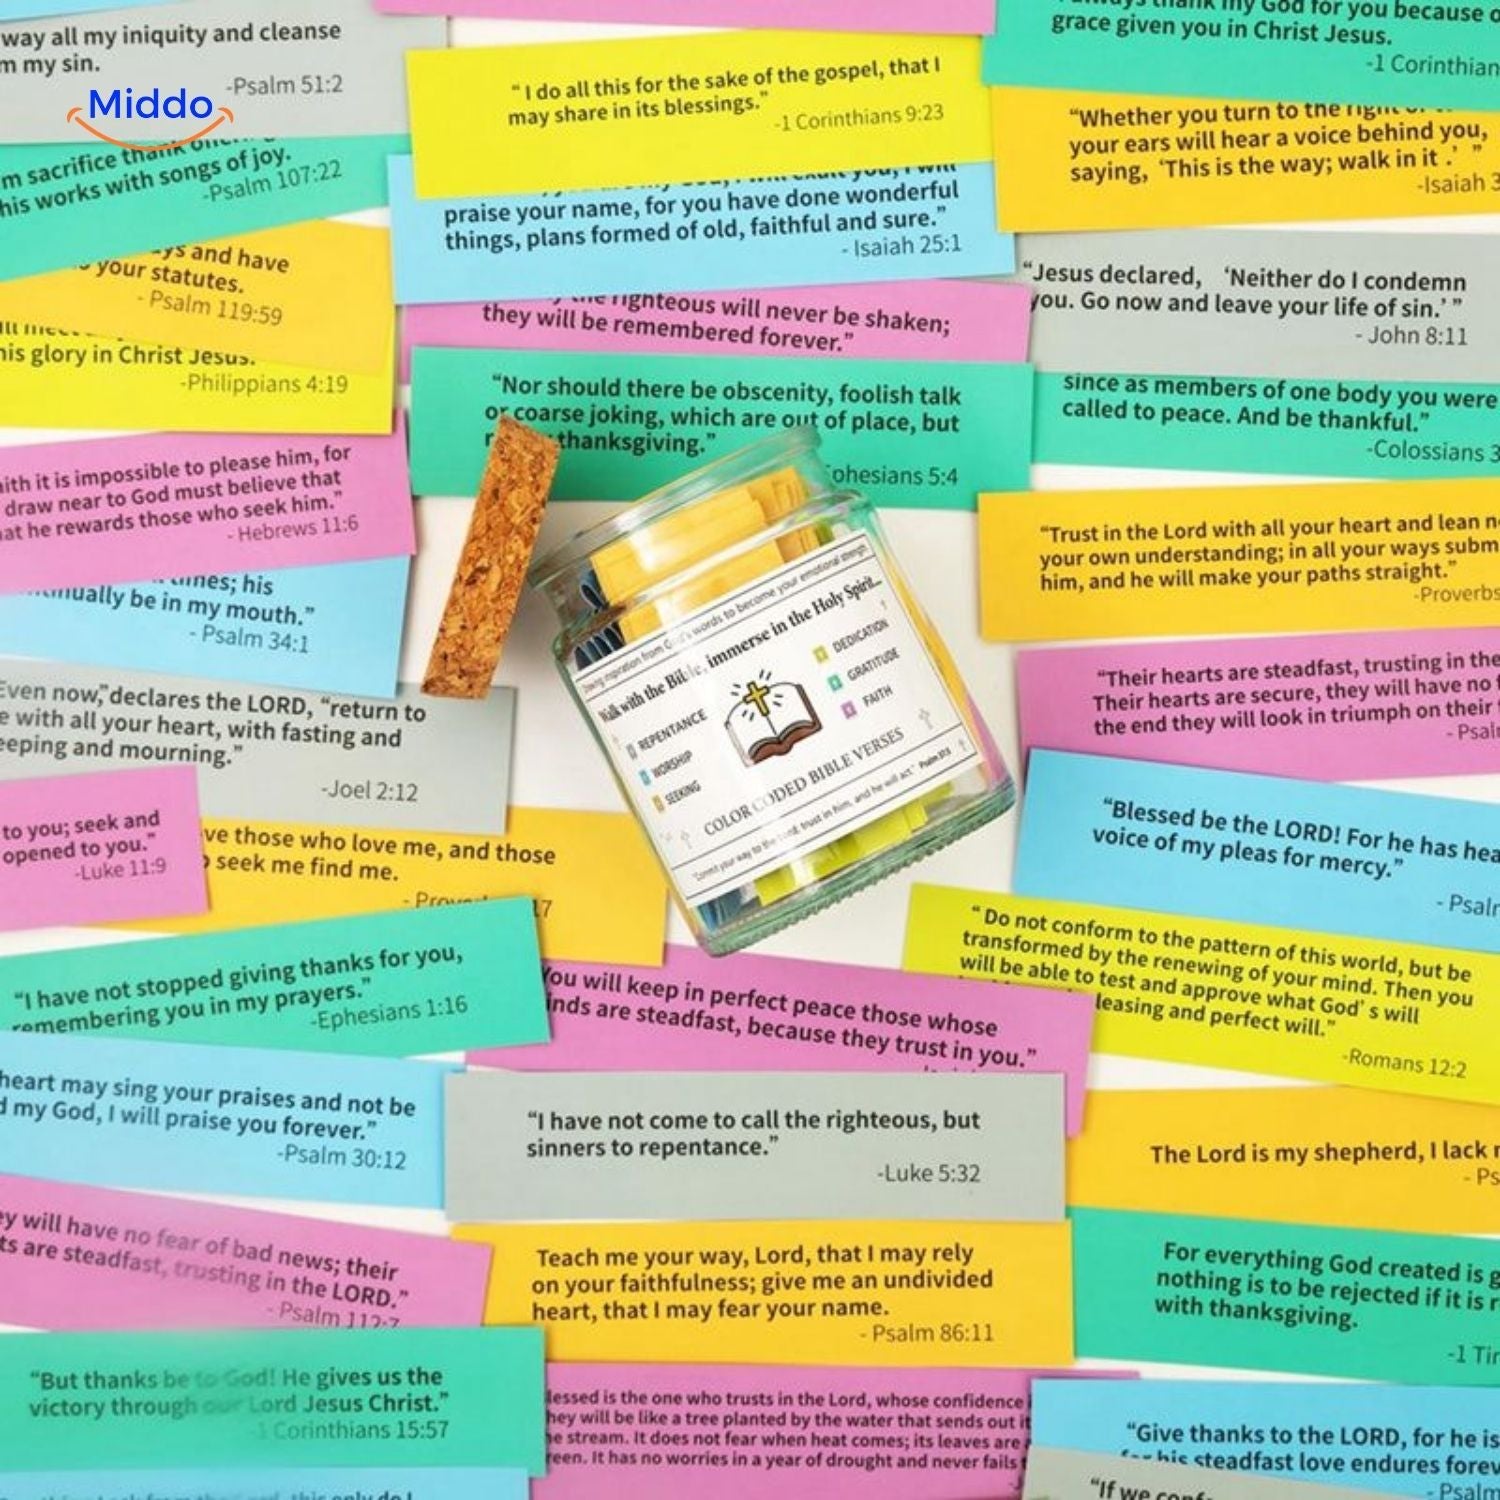 way all my iniquity and cleanse
m my sin.
-Psalm 51:2
Middo
m sacrifice thank
his works with songs of joy.
-Psalm 107:22
ys and have
your statutes.
- Psalm 119:59
his glory in Christ Jesus.
-Philippians 4:19
ith it is impossible to please him, for
draw near to God must believe that
at he rewards those who seek him.”
- Hebrews 11:6
times; his
nually be in my mouth.”
- Psalm 34:1
Even now,” declares the LORD, “return to
e with all your heart, with fasting and
eeping and mourning.”
-Joel 2:12
to you; seek and
opened to you.”
-Luke 11:9
ve those who love me, and those
seek me find me.
17
“I have not stopped giving thanks for you,
remembering you in my prayers.”
-Ephesians 1:16
heart may sing your praises and not be
d my God, I will praise you forever.”
-Psalm 30:12
ey will have no fear of bad news; their
ts are steadfast, trusting in the LORD.”
- Psalm 112:7
“But thanks be to God! He gives us the
victory through our Lord Jesus Christ.”
1 Corinthians 15:57
“ I do all this for the sake of the gospel, that I
may share in its blessings.”
-1 Corinthians 9:23
praise your name, for you have done wonderful
things, plans formed of old, faithful and sure.”
- Isaiah 25:1
the righteous will never be shaken;
they will be remembered forever.”
“Nor should there be obscenity, foolish talk
or coarse joking, which are out of place, but
thanksgiving.”
phesians 5:4
inspiration from God's words to become your emotional strength
Walk with the Bible, immerse in the Holy Spirit...
REPENTANCE
WORSHIP
SEEKING
DEDICATION
GRATITUDE
FAITH
COLOR CODED BIBLE VERSES
"Commit your way to the Lord; trust in him, and he will act" Psalm 37:5
You will keep in perfect peace those whose
inds are steadfast, because they trust in you.”
“I have not come to call the righteous, but
sinners to repentance.”
-Luke 5:32
Teach me your way, Lord, that I may rely
on your faithfulness; give me an undivided
heart, that I may fear your name.
- Psalm 86:11
lessed is the one who trusts in the Lord, whose confidence
hey will be like a tree planted by the water that sends out it
e stream. It does not fear when heat comes; its leaves are
reen. It has no worries in a year of drought and never fails
always thank my God for you because o
grace given you in Christ Jesus.
-1 Corinthian
“Whether you turn to the right or
your ears will hear a voice behind you,
saying, ‘This is the way; walk in it .’ ”
-Isaiah 3
“Jesus declared, ‘Neither do I condemn
you. Go now and leave your life of sin.’ ”
- John 8:11
since as members of one body you were
called to peace. And be thankful.”
-Colossians 3
“Trust in the Lord with all your heart and lean n
your own understanding; in all your ways subm
him, and he will make your paths straight.”
-Proverbs
“Their hearts are steadfast, trusting in the
Their hearts are secure, they will have no f
the end they will look in triumph on their
- Psal
“Blessed be the LORD! For he has hea
voice of my pleas for mercy.”
- Psalr
“ Do not conform to the pattern of this world, but be
transformed by the renewing of your mind. Then you
will be able to test and approve what God’ s will
leasing and perfect will.”
-Romans 12:2
The Lord is my shepherd, I lack
- Ps
For everything God created is g
nothing is to be rejected if it is r
with thanksgiving.
-1 Tir
“Give thanks to the LORD, for he is
for his steadfast love endures forev
- Psalm
“If we conf